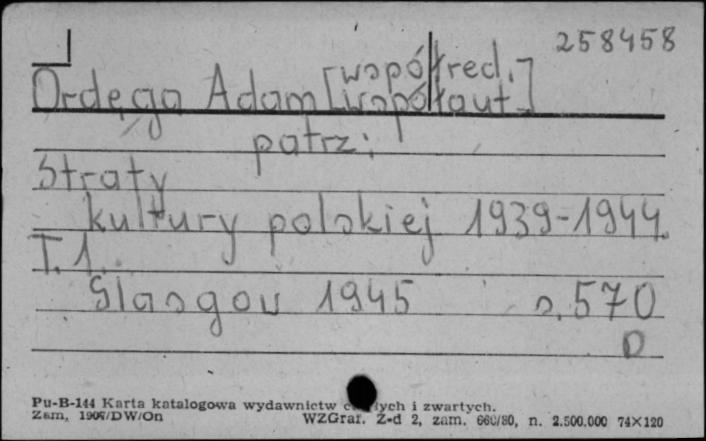 258458
Ordęga Adam [współred.
współaut.]
patrz:
Straty
kultury polskiej 1939-1944.
T. 1.
Glasgow 1945 s. 570
D
Pu-B-144 Karta katalogowa wydawnictw ciągłych i zwartych.
Zam, 1906/DW/On WZGraf. Z-d 2, zam. 660/80, n. 2.500.000 74×120